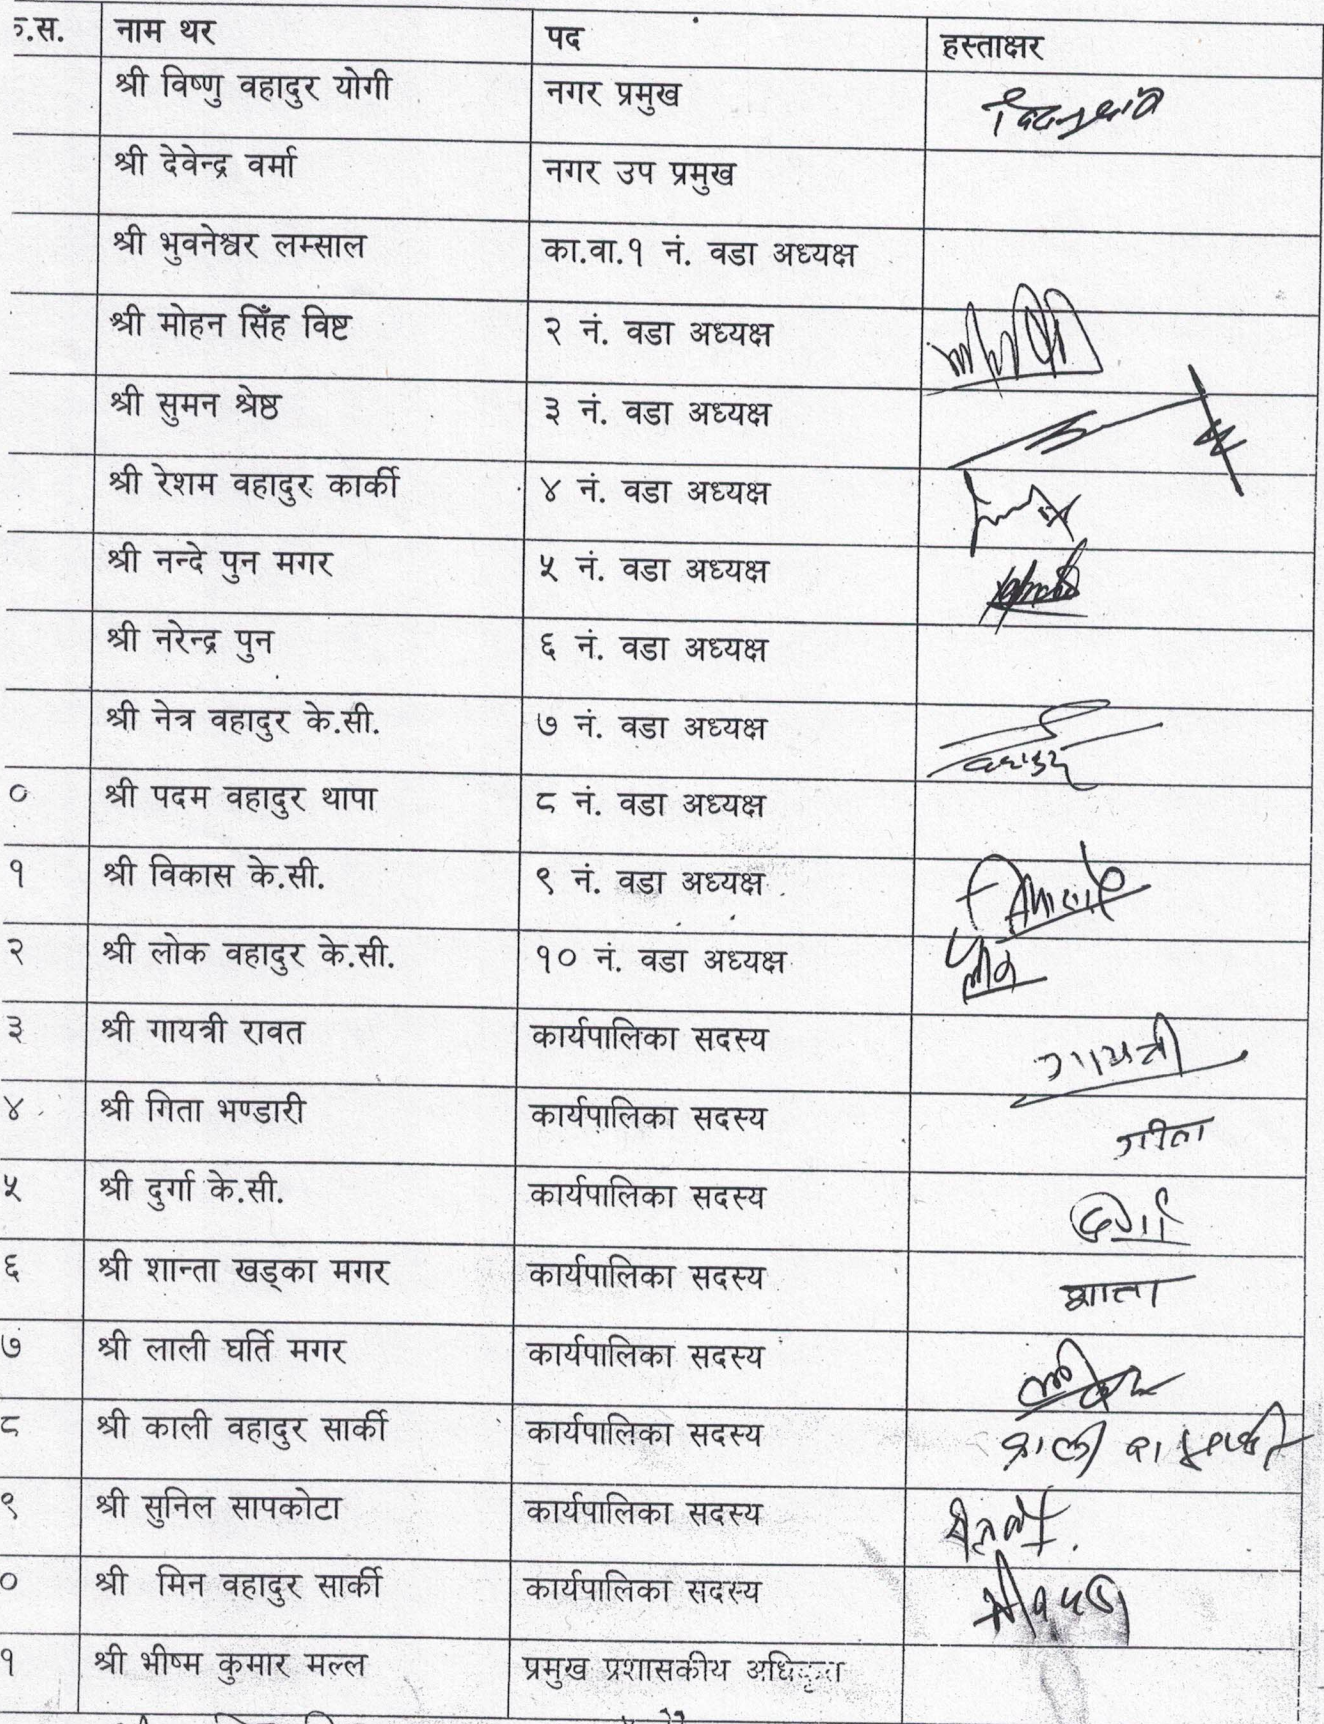 क्र.स. नाम थर पद हस्ताक्षर
श्री विष्णु वहादुर योगी नगर प्रमुख
श्री देवेन्द्र वर्मा नगर उप प्रमुख
श्री भुवनेश्वर लम्साल का.वा.१ नं. वडा अध्यक्ष
श्री मोहन सिँह विष्ट २ नं. वडा अध्यक्ष
श्री सुमन श्रेष्ठ ३ नं. वडा अध्यक्ष
श्री रेशम वहादुर कार्की ४ नं. वडा अध्यक्ष
श्री नन्दे पुन मगर ५ नं. वडा अध्यक्ष
श्री नरेन्द्र पुन ६ नं. वडा अध्यक्ष
श्री नेत्र वहादुर के.सी. ७ नं. वडा अध्यक्ष
० श्री पदम वहादुर थापा ८ नं. वडा अध्यक्ष
१ श्री विकास के.सी. ९ नं. वडा अध्यक्ष
२ श्री लोक वहादुर के.सी. १० नं. वडा अध्यक्ष
३ श्री गायत्री रावत कार्यपालिका सदस्य गायत्री
४ श्री गिता भण्डारी कार्यपालिका सदस्य गीता
५ श्री दुर्गा के.सी. कार्यपालिका सदस्य दुर्गा
६ श्री शान्ता खड्का मगर कार्यपालिका सदस्य शान्ता
७ श्री लाली घर्ति मगर कार्यपालिका सदस्य
८ श्री काली वहादुर सार्की कार्यपालिका सदस्य काली
९ श्री सुनिल सापकोटा कार्यपालिका सदस्य
० श्री मिन वहादुर सार्की कार्यपालिका सदस्य
१ श्री भीष्म कुमार मल्ल प्रमुख प्रशासकीय अधिकृत